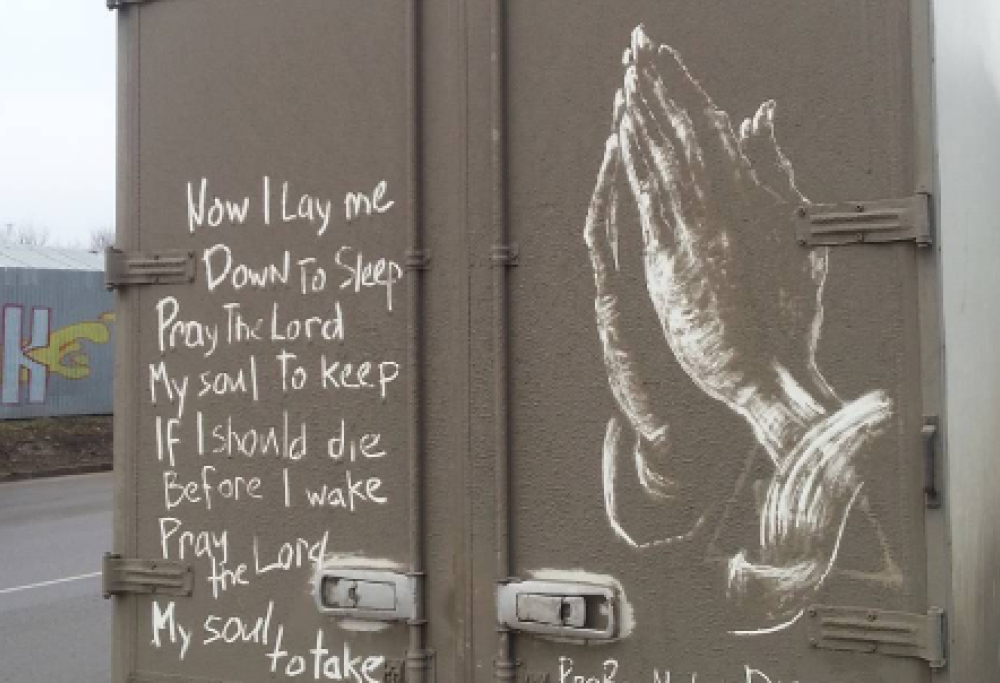 Now I Lay me
Down To Sleep
Pray The Lord
My soul to keep
If I should die
Before I wake
Pray
the Lord
My soul
to take